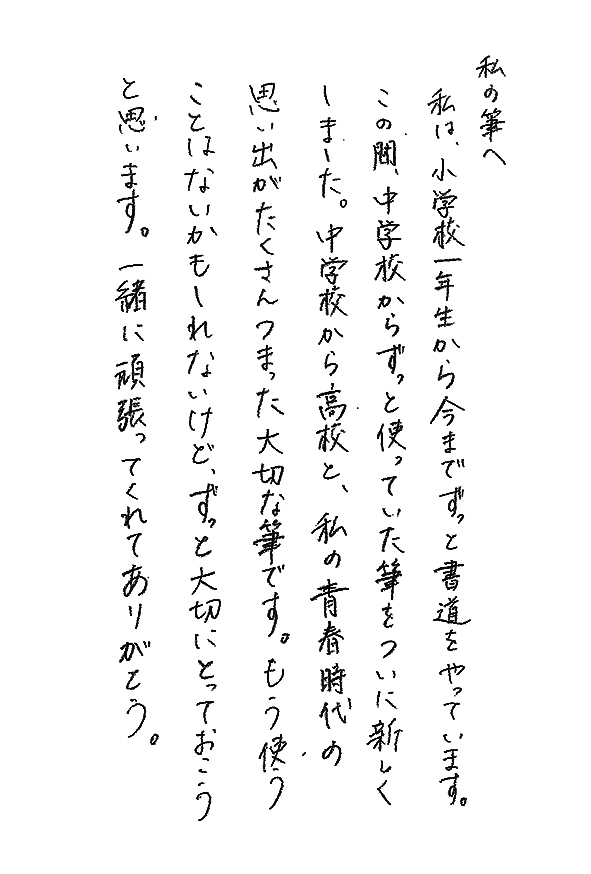 私の筆へ
私は、小学校一年生から今までずっと書道をやっています。
この間、中学校からずっと使っていた筆をついに新しく
しました。中学校から高校と、私の青春時代の
思い出がたくさんつまった大切な筆です。もう使う
ことはないかもしれないけど、ずっと大切にとっておこう
と思います。一緒に頑張ってくれてありがとう。